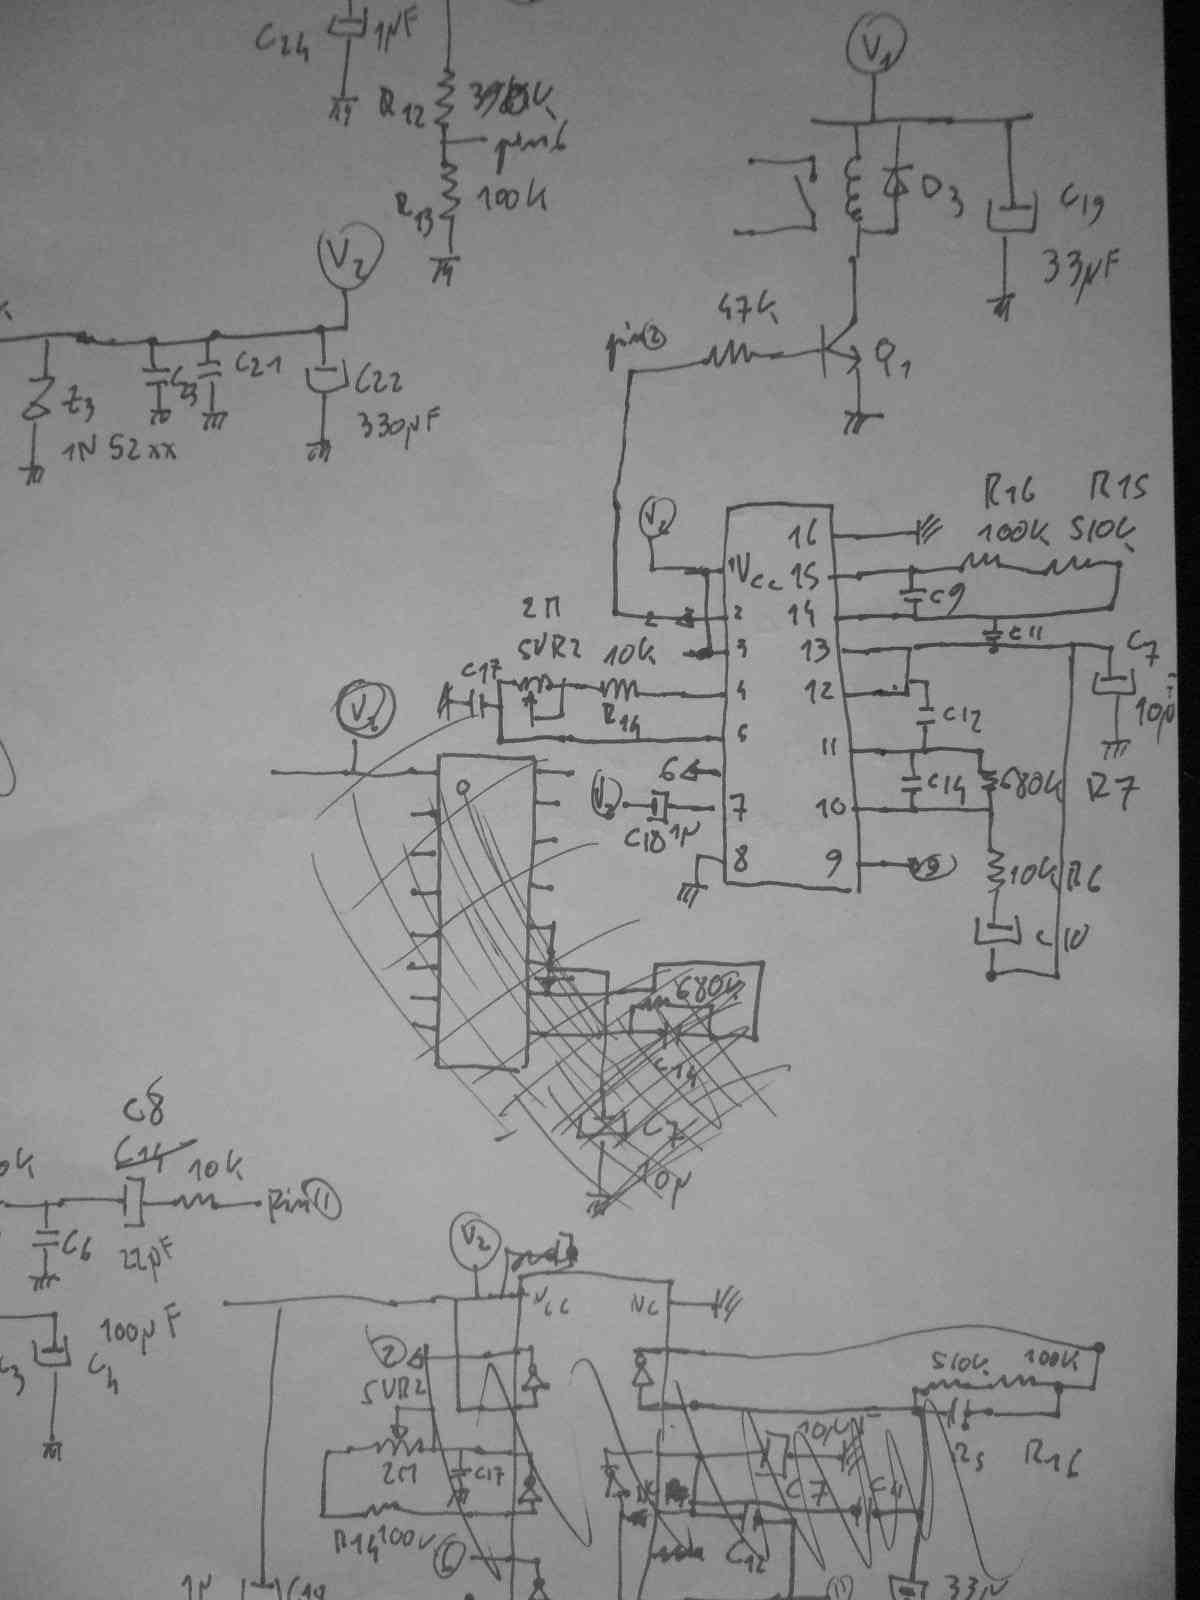 C24 1µF
R12
pin6
R13 100K
V1
D3
C19
33µF
V2
C23 C21 C22
330µF
Z3
1N52xx
47K
pin②
Q1
R16 R15
100K 510K
16
1Vcc 15
C9
2 14
C11
3 13
C7
10µ
2M
5VR2 10K
C17
R14
4 12
C12
5 11
6
C14 680K R7
7 10
C18 1µ
8 9
10K R6
C10
680K
C14
C7
10µ
C8
C14
10K
Pin⑪
C6
22µF
100µF
C3 C4
V2
VCC NC
②
5VR2
510K 100K
2M
C17
R16
R14 100K
⑥
C7
C12
⑪
33µ
1µ